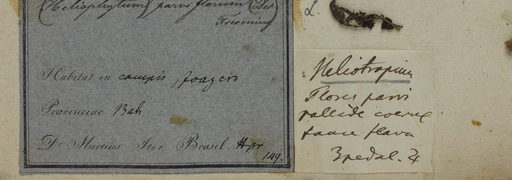 Heliophytum parviflorum Des
Fresenius
Habitat in campis,
Provinciae Bah
Dr Martius Iter Brasil. Hpr
149.
L.
Heliotropium
Flores parvi
pallide coerul
fauce flava
3pedal. ♃